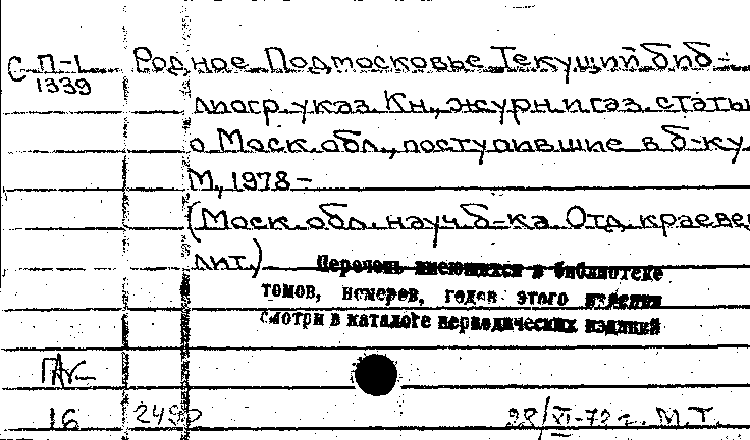 С П-1 Родное Подмосковье Текущий биб-
1339
лиогр. указ. Кн., журн. и газ. статьи
о Моск. обл., поступившие в б-ку
М., 1978 –
(Моск. обл. науч. б-ка. Отд. краевед
лит.)
Перечень имеющихся в библиотеке
томов, номеров, годов этого издания
смотри в каталоге периодических изданий
16 2490 28/VI-79 г. М.Т.